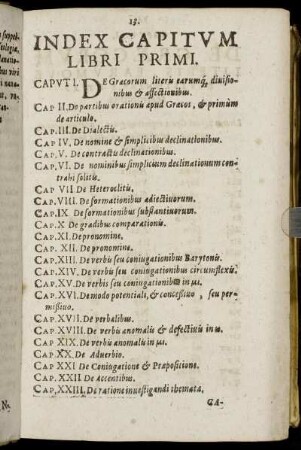 13.
INDEX CAPITVM
LIBRI PRIMI.
CAPVT I. DE Græcorum literis earumq́, diuisio-
nibus & affectionibus.
CAP II. De partibus orationis apud Græcos, & primùm
de articulo.
CAP. III. De Dialectis.
CAP IV. De nomine & simplicibus declinationibus.
CAP. V. De contractis declinationibus.
CAP. VI. De nominibus simplicium declinationum con-
trahi solitis.
CAP VII De Heteroclitis.
CAP. VIII. De formationibus adiectiuorum.
CAP. IX De formationibus substantiuorum.
CAP. X De gradibus comparationis.
CAP. XI. De pronomine.
CAP. XII. De pronomine.
CAP. XIII. De verbis seu coniugationibus Barytonis.
CAP. XIV. De verbis seu coniugationibus circumflexis.
CAP. XV. De verbis seu coniugationibus in μι.
CAP. XVI. De modo potentiali, & concessiuo, seu per-
missiuo.
CAP. XVII. De verbalibus.
CAP. XVIII. De verbis anomalis & defectiuis in ω.
CAP. XIX. De verbis anomalis in μι.
CAP. XX. De Aduerbio.
CAP. XXI De Coniunctione & Præpositione.
CAP. XXII. De Accentibus.
CAP. XXIII. De ratione inuestigandi themata,
CA-